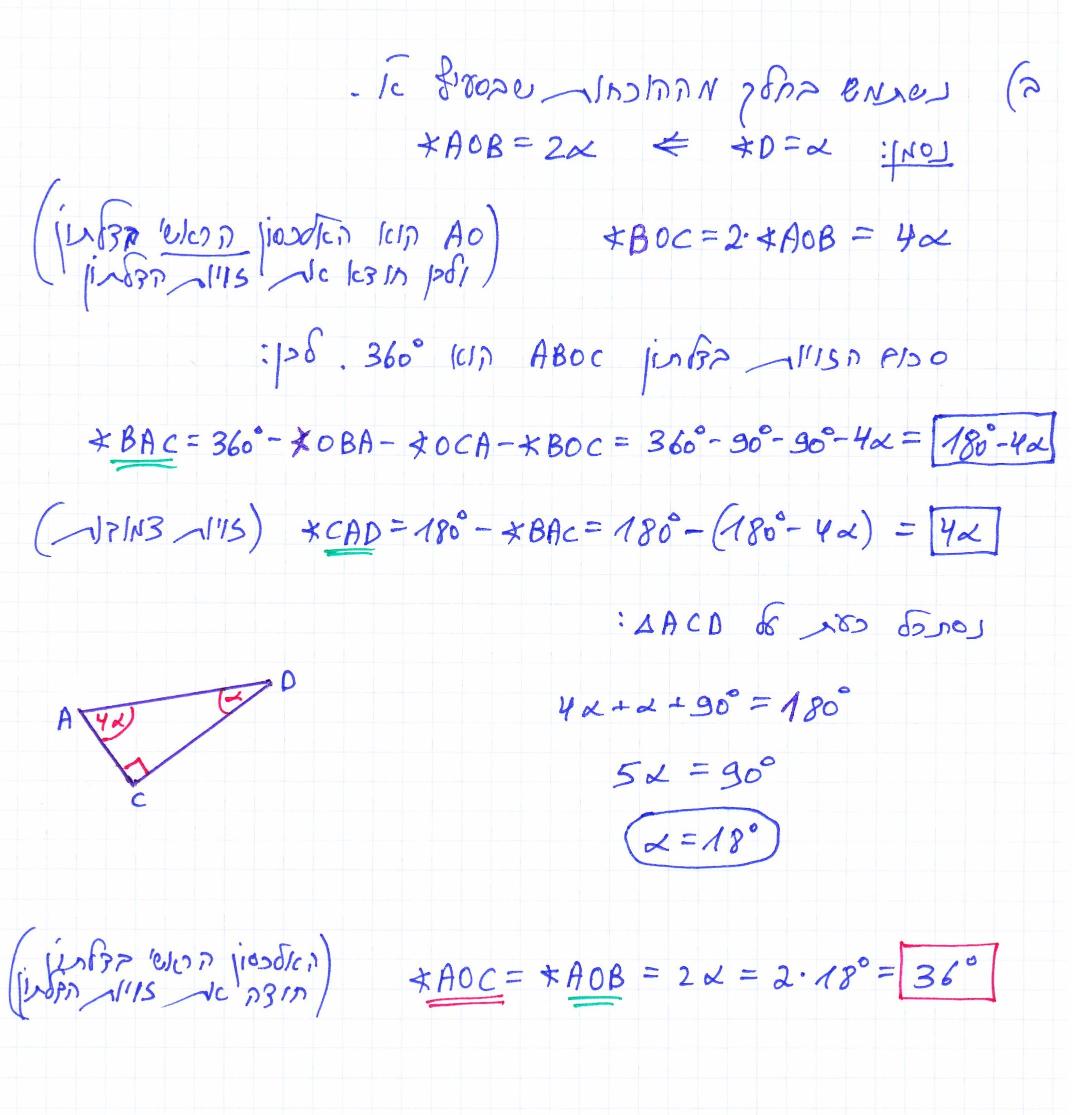 ב) נשתמש בחלק מההוכחות שבסעיף א'.
נסמן: ∢D = α ⇐ ∢AOB = 2α
∢BOC = 2·∢AOB = 4α
(AO הוא האלכסון הראשי בדלתון
ולכן חוצה את זויות הדלתון)
סכום הזויות בדלתון ABOC הוא 360°. לכן:
∢BAC = 360° - ∢OBA - ∢OCA - ∢BOC = 360° - 90° - 90° - 4α = 180° - 4α
∢CAD = 180° - ∢BAC = 180° - (180° - 4α) = 4α (זויות צמודות)
נסתכל כעת על ΔACD:
4α + α + 90° = 180°
5α = 90°
α = 18°
A 4α α D
C
∢AOC = ∢AOB = 2α = 2·18° = 36°
(האלכסון הראשי בדלתון
חוצה את זויות הדלתון)